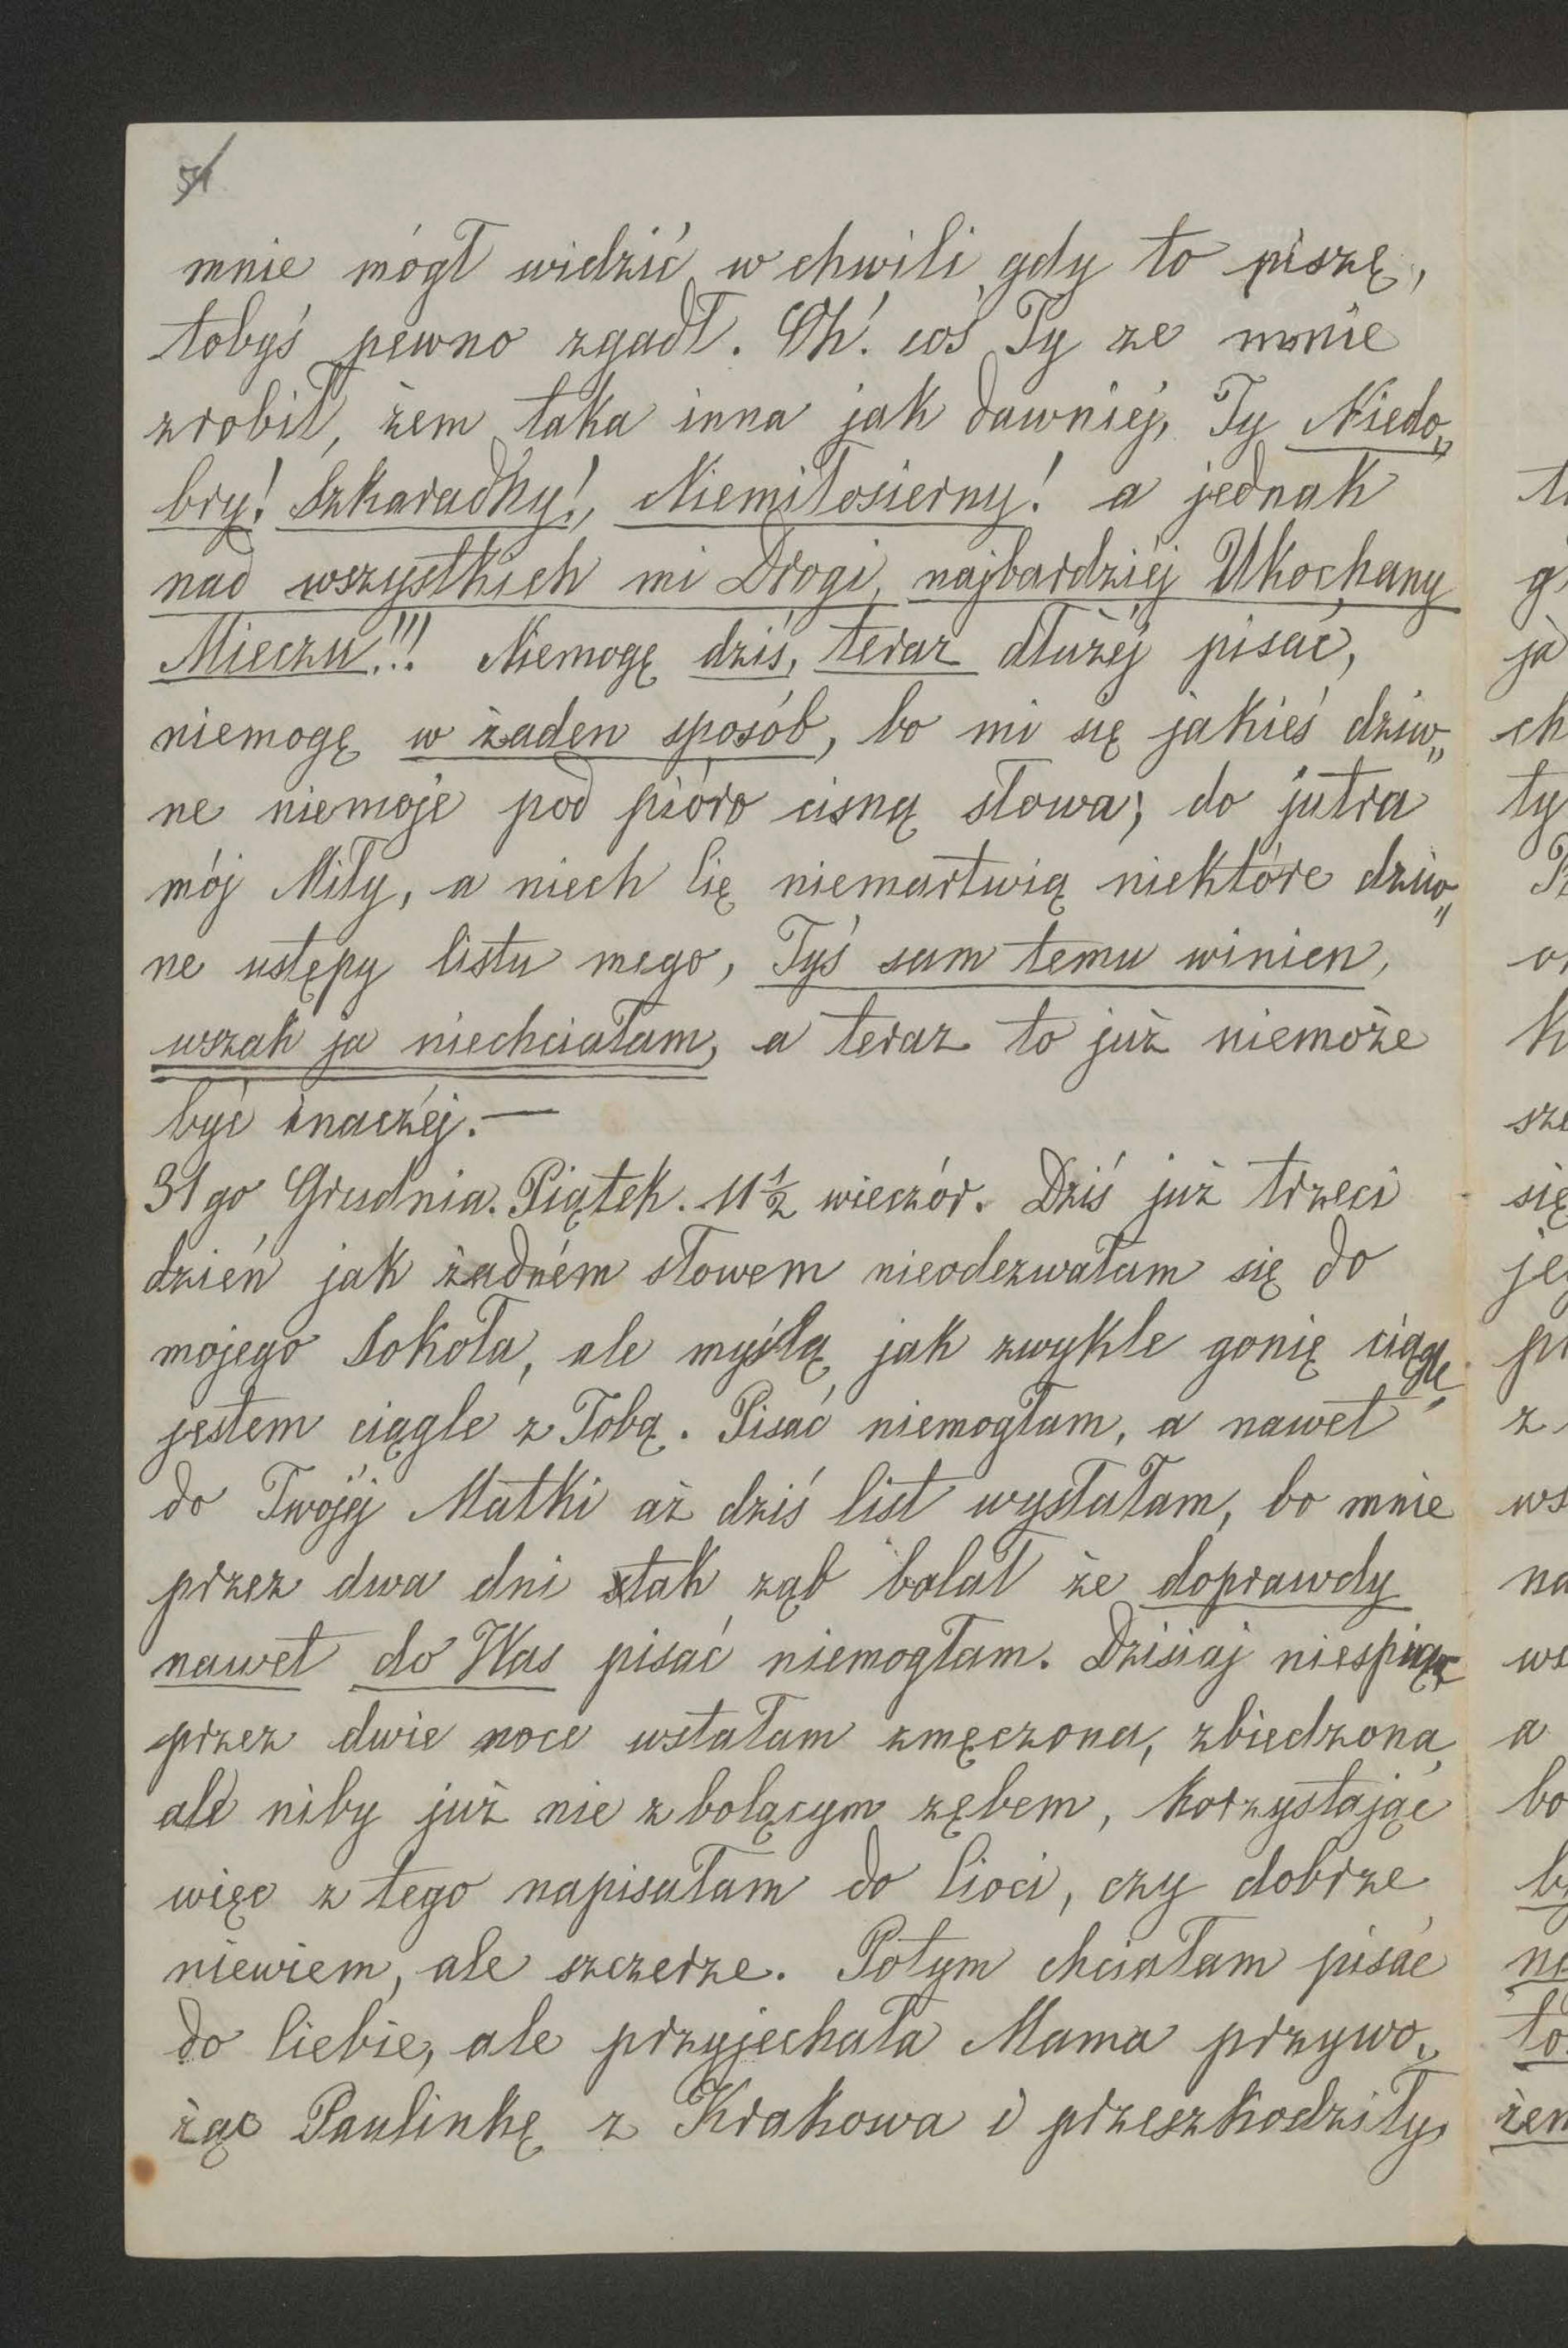 mnie mógł widzić w chwili gdy to piszę,
tobyś pewno zgadł. Oh! coś Ty ze mnie
zrobił, żem taka inna jak dawniej, Ty Niedo„
bry! Szkaradny!, Niemiłosierny! a jednak
nad wszystkich mi Drogi, najbardziéj Ukochany
Mieczu!!! Niemogę dziś, teraz dłużéj pisać,
niemogę w żaden sposób, bo mi się jakieś dziw„
ne niemoje pod pióro cisną słowa; do jutra
mój Miły, a niech Cię niemartwią niektóre dziw„
ne ustępy listu mego, Tyś sam temu winien,
wszak ja niechciałam, a teraz to już niemoże
być inaczéj.—
31go Grudnia. Piątek. 11½ wieczór. Dziś już trzeci
dzień jak żadném słowem nieodezwałam się do
mojego Sokoła, ale myślą jak zwykle gonię ciągle
jestem ciągle z Tobą. Pisać niemogłam, a nawet
do Twojéj Matki aż dziś list wysłałam, bo mnie
przez dwa dni tak ząb bolał że doprawdy
nawet do Was pisać niemogłam. Dzisiaj niespiąc
przez dwie noce wstałam zmęczona, zbiedzona,
ale niby już nie z bolącym zębem, korzystając
więc z tego napisałam do Cioci, czy dobrze
niewiem, ale szczerze. Potym chciałam pisać
do Ciebie, ale przyjechała Mama przywo„
żąc Paulinkę z Krakowa i przeszkodziły,